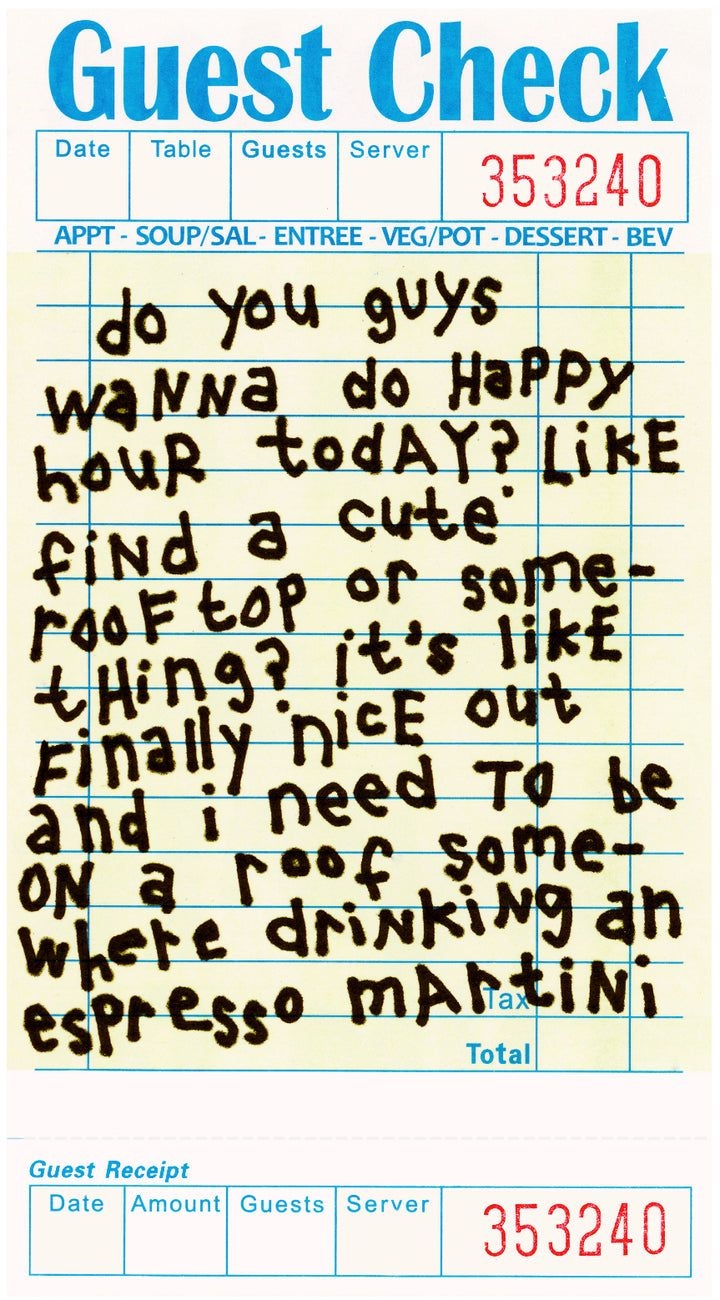 Guest Check
Date Table Guests Server 353240
APPT - SOUP/SAL - ENTREE - VEG/POT - DESSERT - BEV
do you guys
waNNa do HaPPy
houR todAY? LiKE
fiNd a cute
rooFtop or some-
tHing? it's likE
Finally nicE out
and i need TO be
ON a roof some-
where driNKiNg an
espresso mArtiNi
Tax
Total
Guest Receipt
Date Amount Guests Server 353240